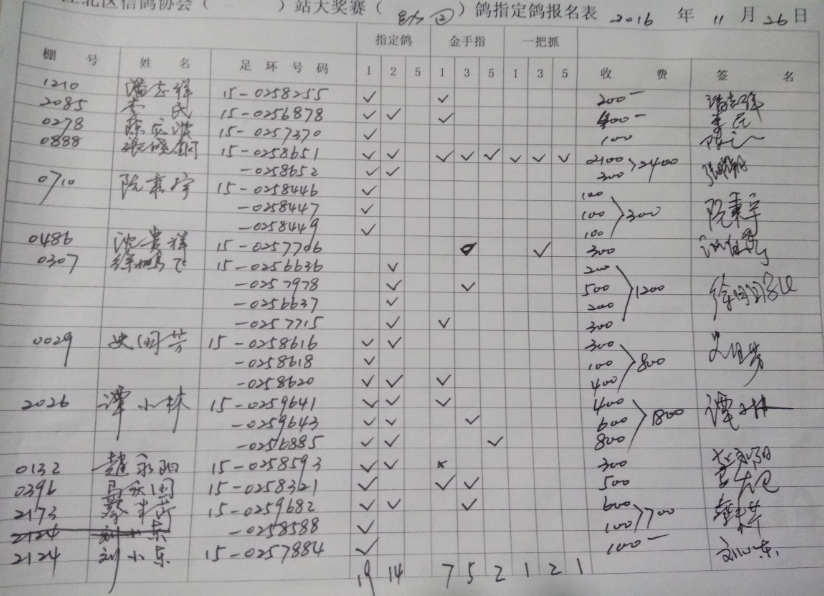 北区信鸽协会（ ）站大奖赛（ ）鸽指定鸽报名表 2016 年 11 月 26 日
指定鸽 金手指 一把抓
棚 号 姓 名 足 环 号 码 1 2 5 1 3 5 1 3 5 收 费 签 名
1210 15-0258255 ✓ ✓ 200-
2085 民 15-0256878 ✓ ✓ ✓ 400-
0278 15-0257370 ✓ 100
0888 15-0258651 ✓ ✓ ✓ ✓ ✓ ✓ ✓ ✓ 2100 >2400
-0258652 ✓ ✓ 300
0710 阮秉宇 15-0258446 ✓ 100
-0258447 ✓ 100 >300 阮秉宇
-0258449 ✓ 100
0486 沈贵祥 15-0257706 ✓ 300
0307 徐鹏飞 15-0256636 ✓ 200
-0257978 ✓ ✓ 500 >1200
-0256637 ✓ 200
-0257715 ✓ ✓ 300
0029 史国芳 15-0258616 ✓ ✓ 300
-0258618 ✓ 100 >800
-0258620 ✓ ✓ ✓ 400
2026 谭小林 15-0259641 ✓ ✓ ✓ 400
-0259643 ✓ ✓ ✓ 600 >1800 谭小林
-0256885 ✓ ✓ ✓ 800
0132 赵永阳 15-0258593 ✓ ✓ 300
0396 15-0258321 ✓ ✓ ✓ 500
2173 15-0259682 ✓ ✓ ✓ 600 >700
2124 刘小东 -0258588 ✓ 100
2124 刘小东 15-0257884 ✓ 100- 刘小东
19 14 7 5 2 1 2 1